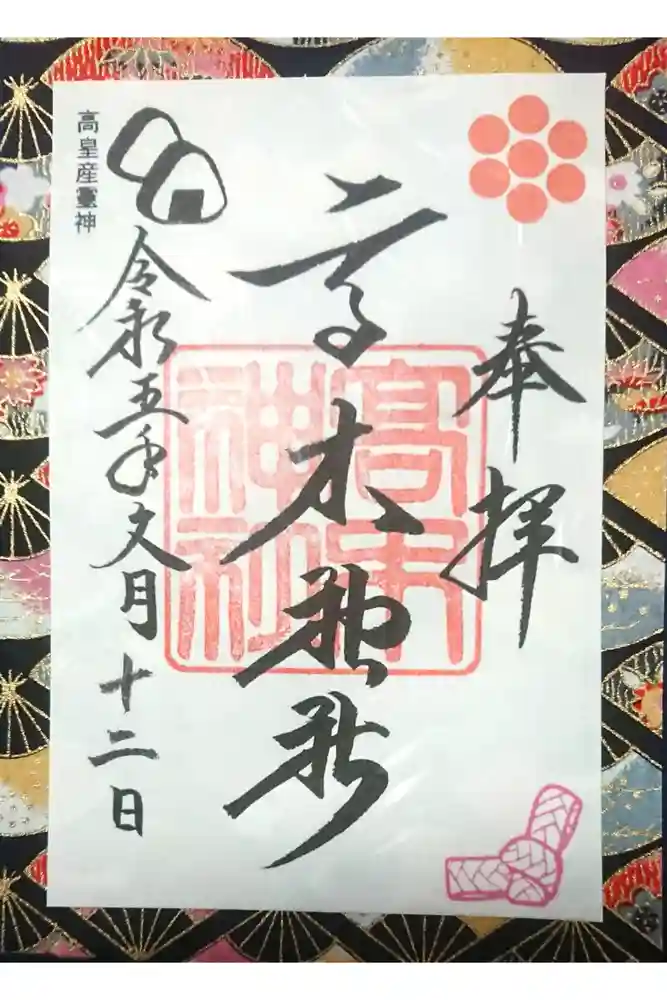 奉拝
高木神社
高木神社
令和五年文月十二日
高皇産靈神